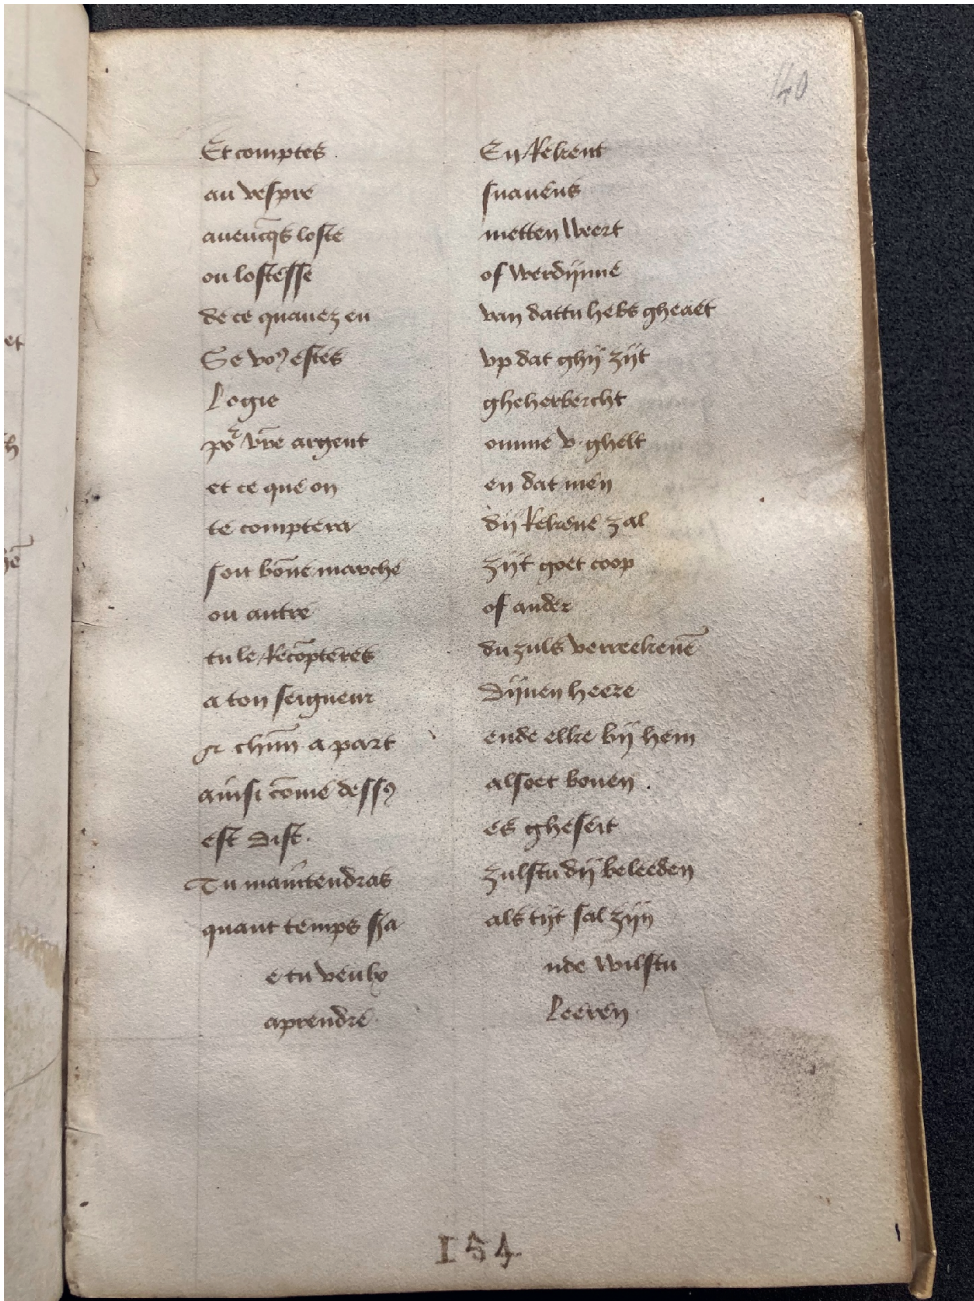 40
Et comptes
au vespre
auencq̄s loste
ou lostesse
de ce quauez eu
Se voꝰ estes
Logie
por vr̄e argent
et ce que on
te comptera
soit bōne marchie
ou autre
tu le Recōpteres
a ton seigneur
chūn a part
ainsi cōme dessꝰ
est dist
Tu maintendras
quant temps sʼa
e tu veulx
aprendre
En Rekent
snauens
metten Weert
of werdijnne
van dattu hebs gheaet
vp dat ghij zijt
gheherberght
omme v ghelt
en dat men
dij Rekene zal
zijt goet coop
of ander
du zuls verreekenē
Dijnen heere
ende elke bij hem
alsoet bouen .
es gheseit
zulstu dij beleeden
als tijt sal zijn
nde wilstu
Leeren
154